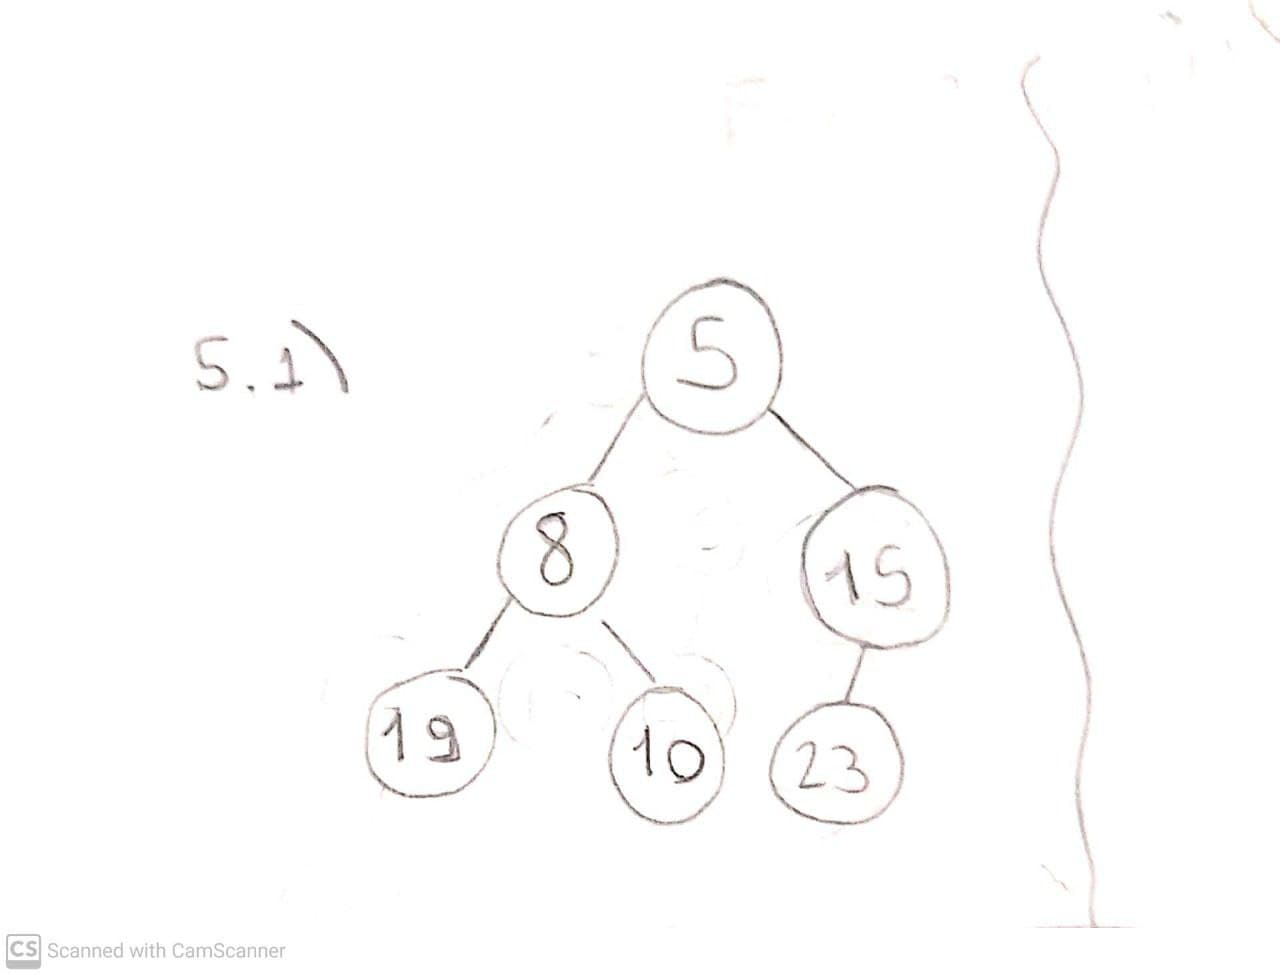 5
5.1)
8
15
19
10
23
CS Scanned with CamScanner